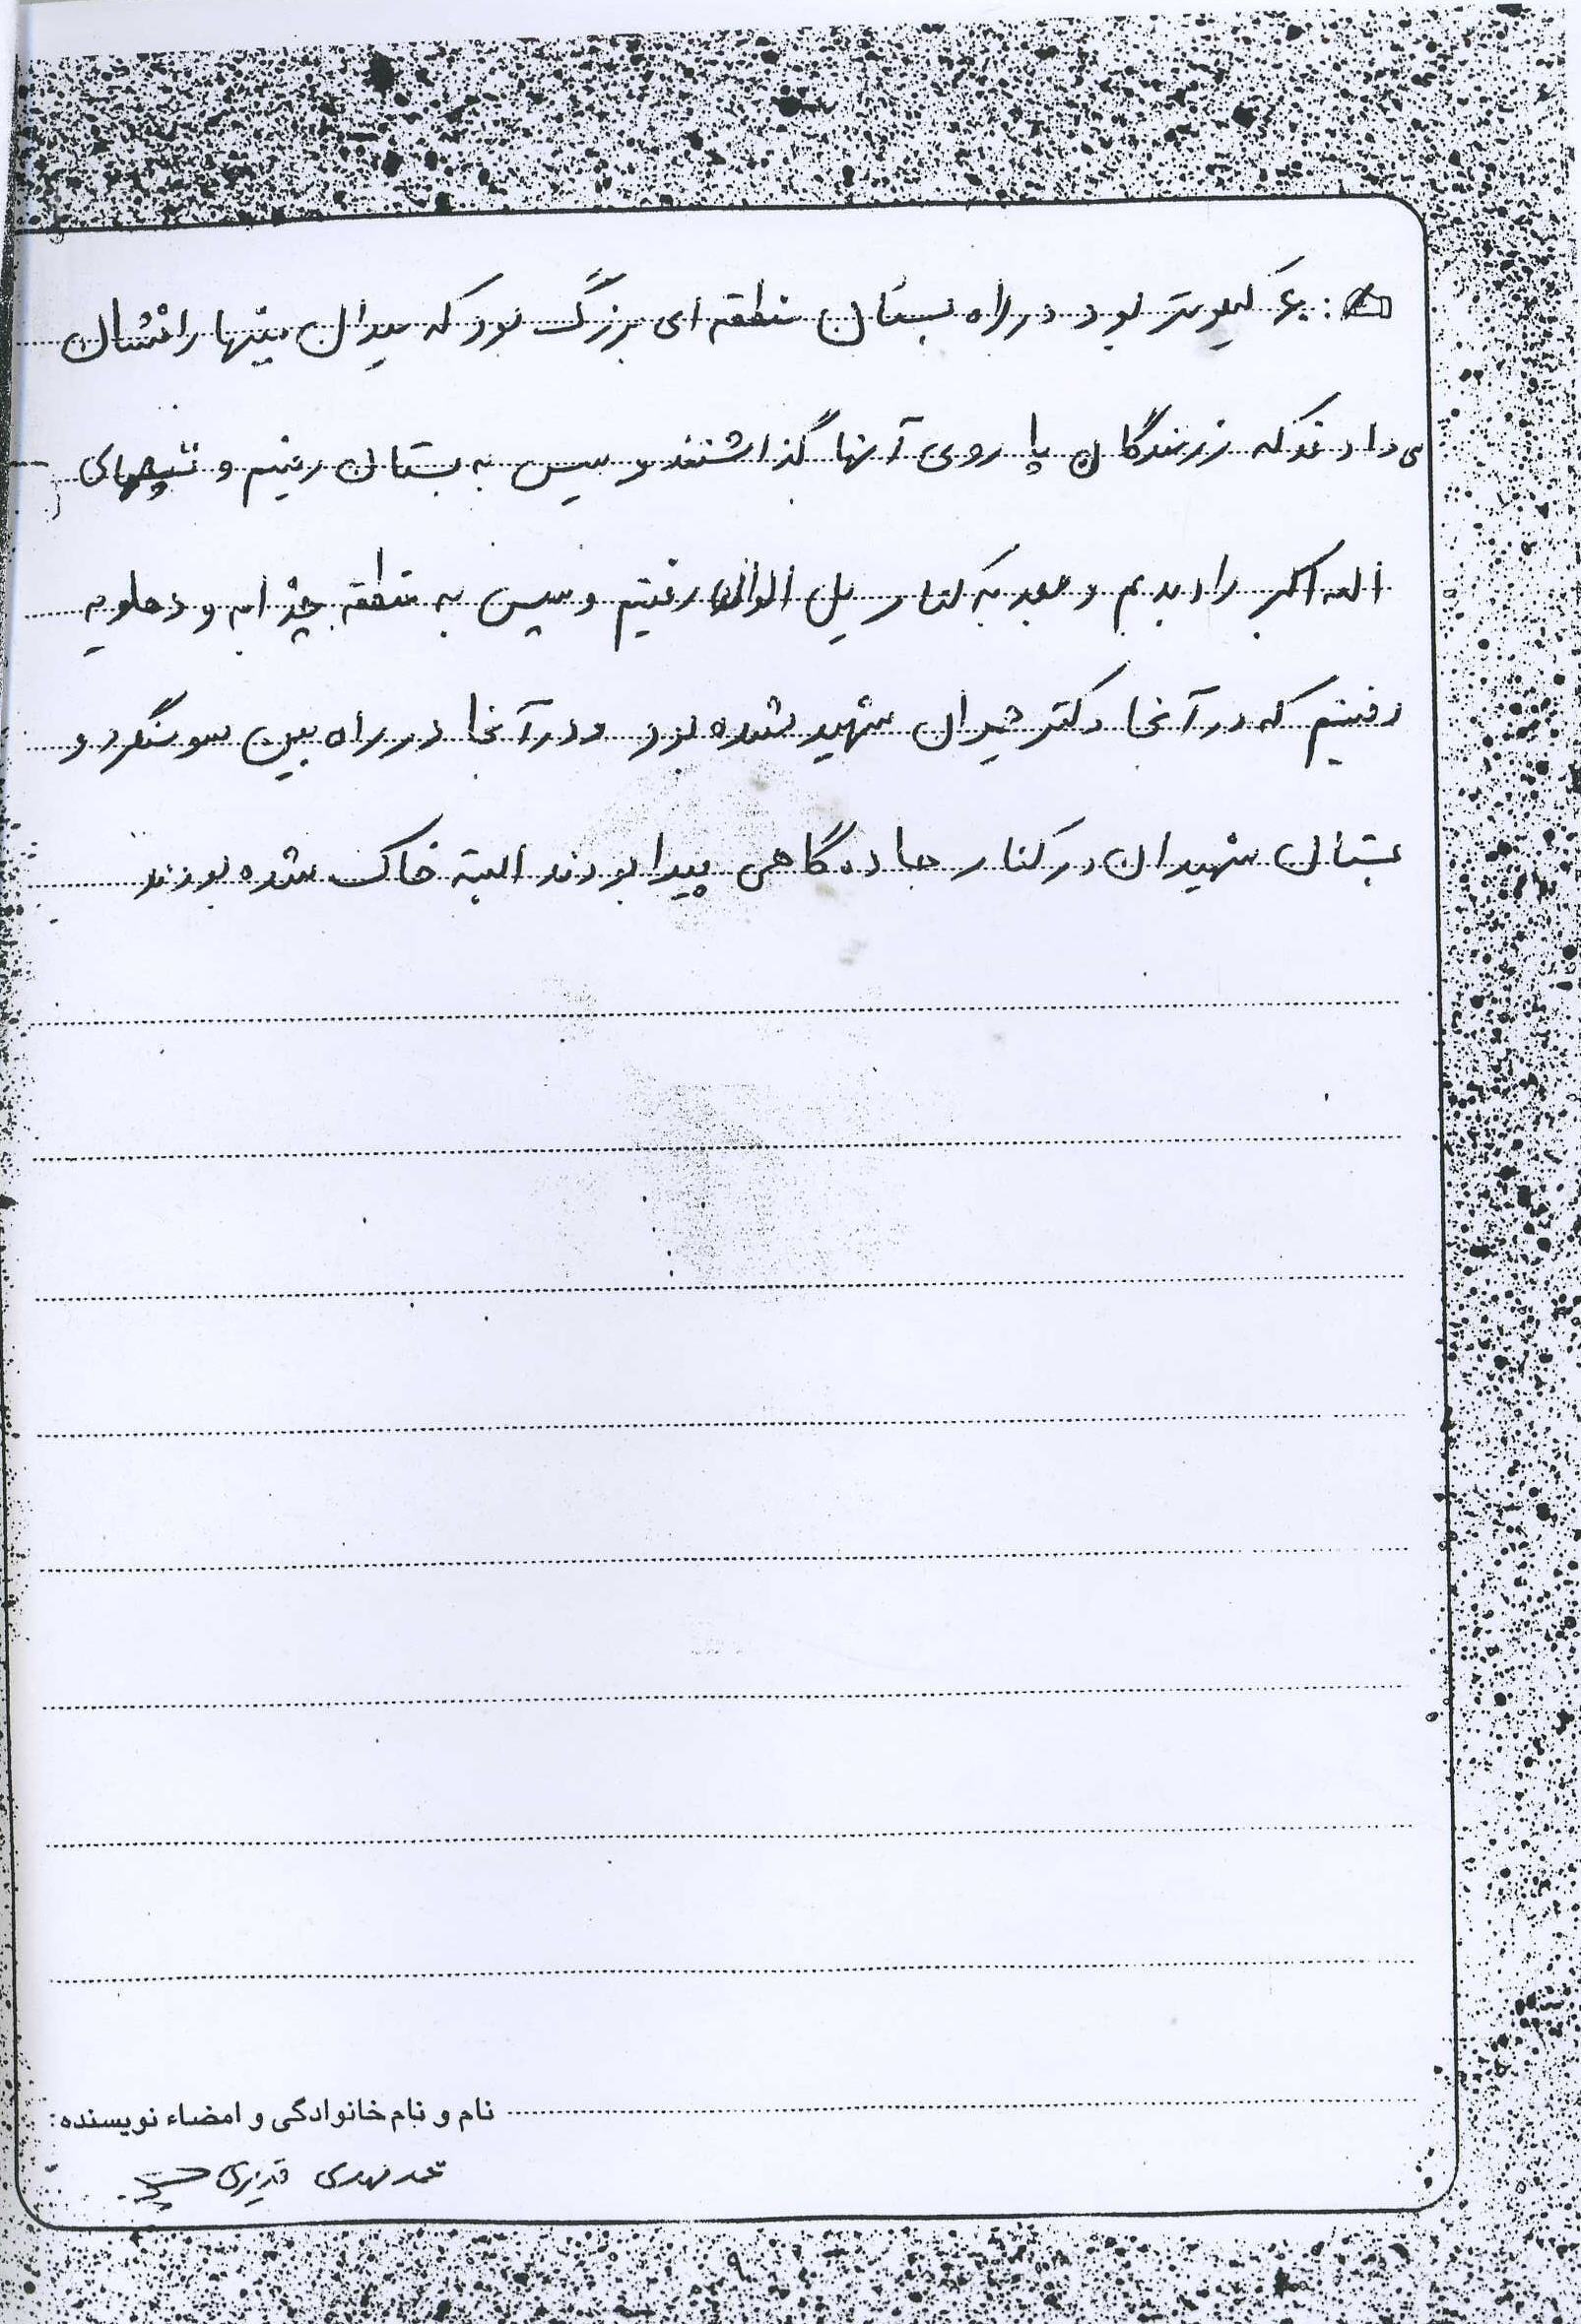 ۶۰ کیلومتر بود در راه بستان منطقه ای بزرگ بود که میدان مینها را نشان
می دادند که رزمندگان پا روی آنها گذاشتند و سپس به بستان رفتیم و تپههای
الله اکبر را دیدیم و بعد به کنار پل الوان رفتیم و سپس به منطقه چزابه و دهلاویه
رفتیم که در آنجا دکتر چمران شهید شده بود و در آنجا در راه بین سوسنگرد و
بستان شهیدان در کنار جاده گاهی پیدا بودند البته خاک شده بودند
نام و نام خانوادگی و امضاء نویسنده:
محمد مهدی
۹